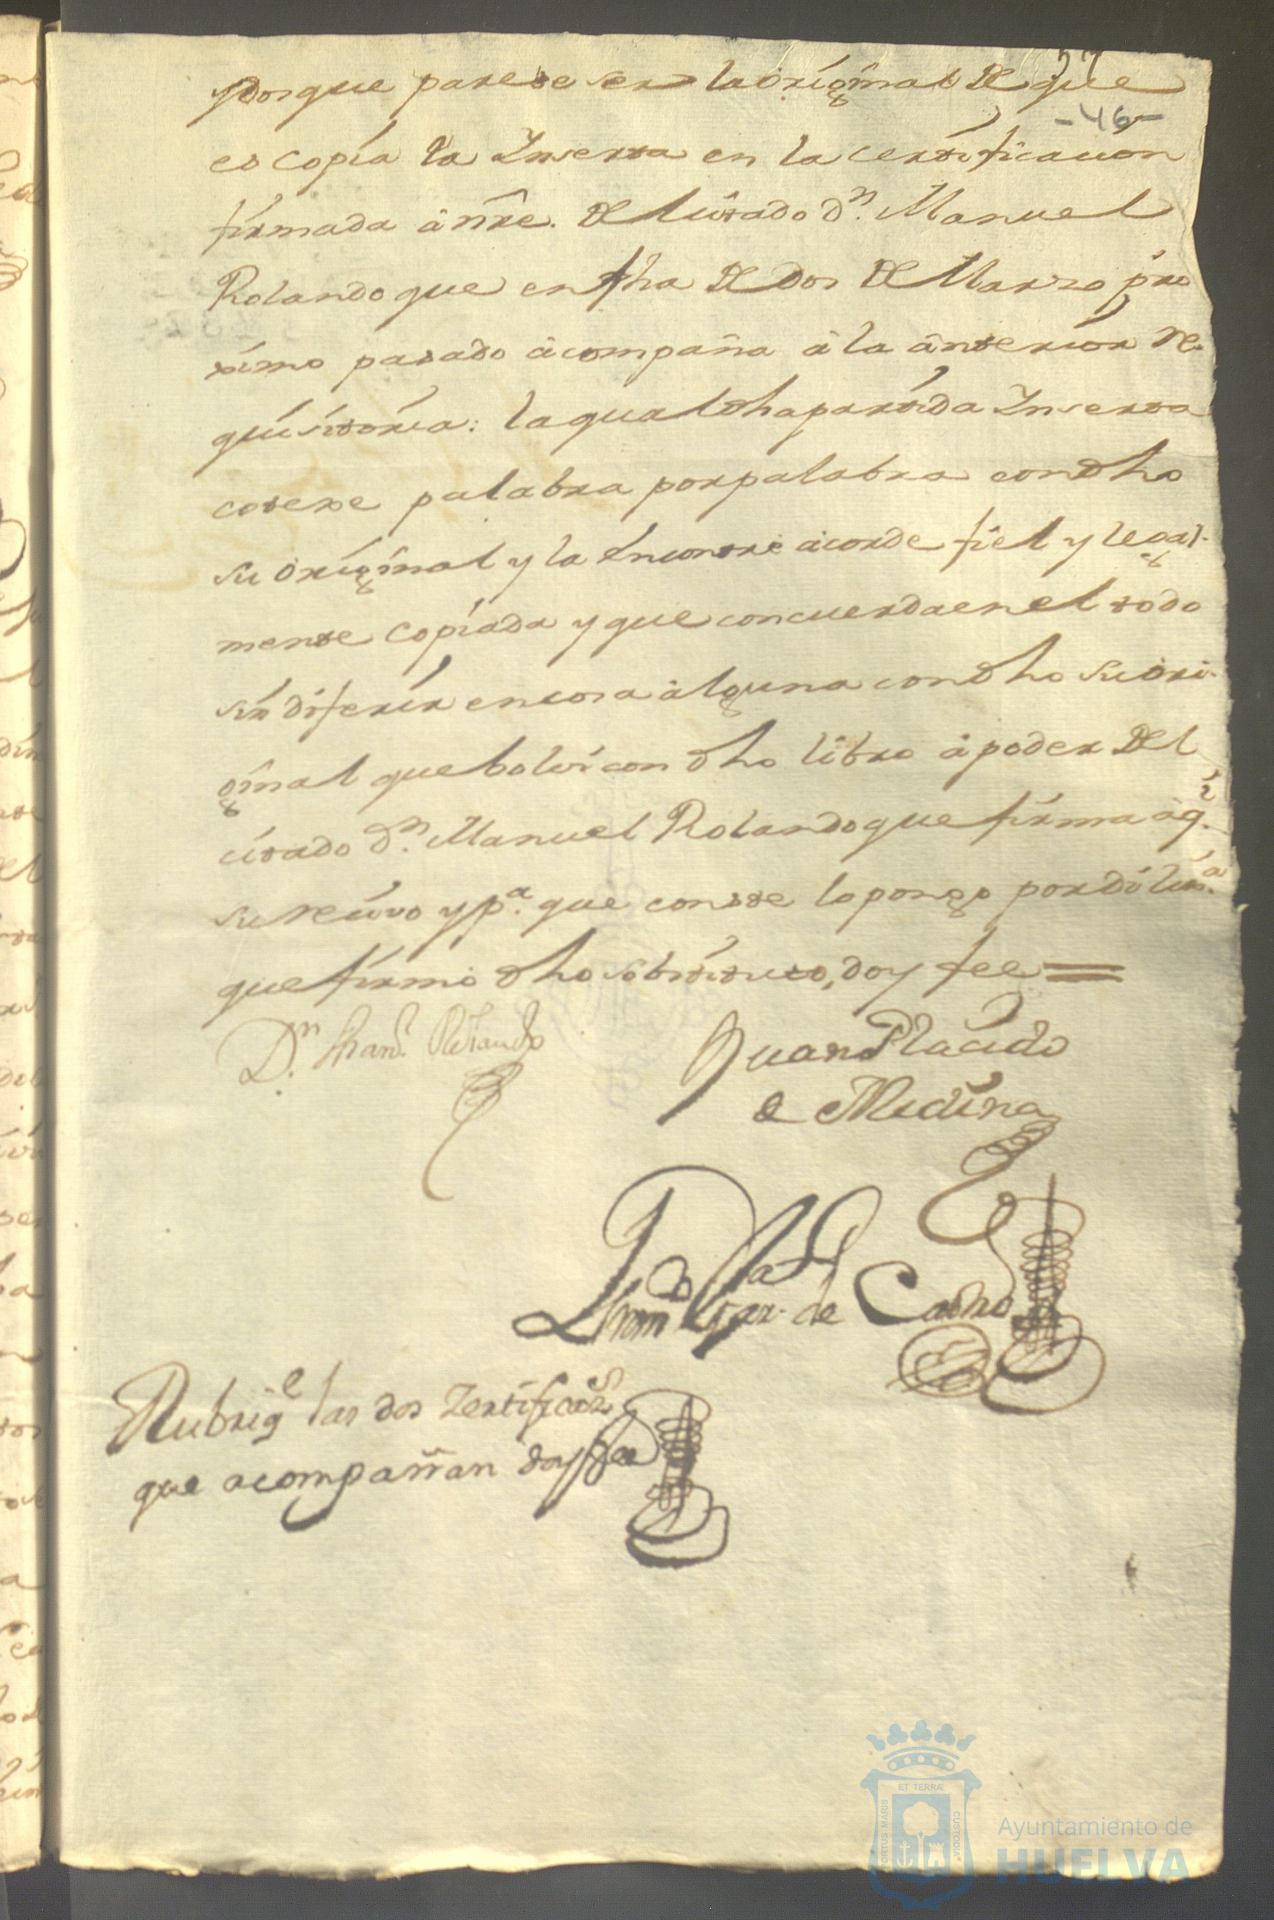 57
y porque parese ser la original de que
-46-
es copia la Inserta en la certificacion
firmada â nr̃e. del citado Dⁿ. Manuel
Rolando que en fha de dos de Marzo pro
simo pasado acompaña â la anterior Re-
quisitoria: la qual dha partida Inserta
coteje palabra por palabra con dho
su original y la encontre acorde fiel y legal-
mente copiada y que concuerda en el todo
sin diferir en cosa alguna con dho su ori-
ginal que bolvi con dho libro â poder del
citado Dⁿ. Manuel Rolando que firma aqͥ.
su recivo y pᵃ. que conste lo pongo por dilixᵃ.
que firmô dho sobstituto, doy fee =
Dⁿ. Manˡ. Rolando
Juan Placido
de Medina
de Castro
Rubriqᵉ las dos Zertificaˢ
que acompañan doy fee
ET TERRÆ
PORTUS MARIS
CUSTODIA
Ayuntamiento de
HUELVA